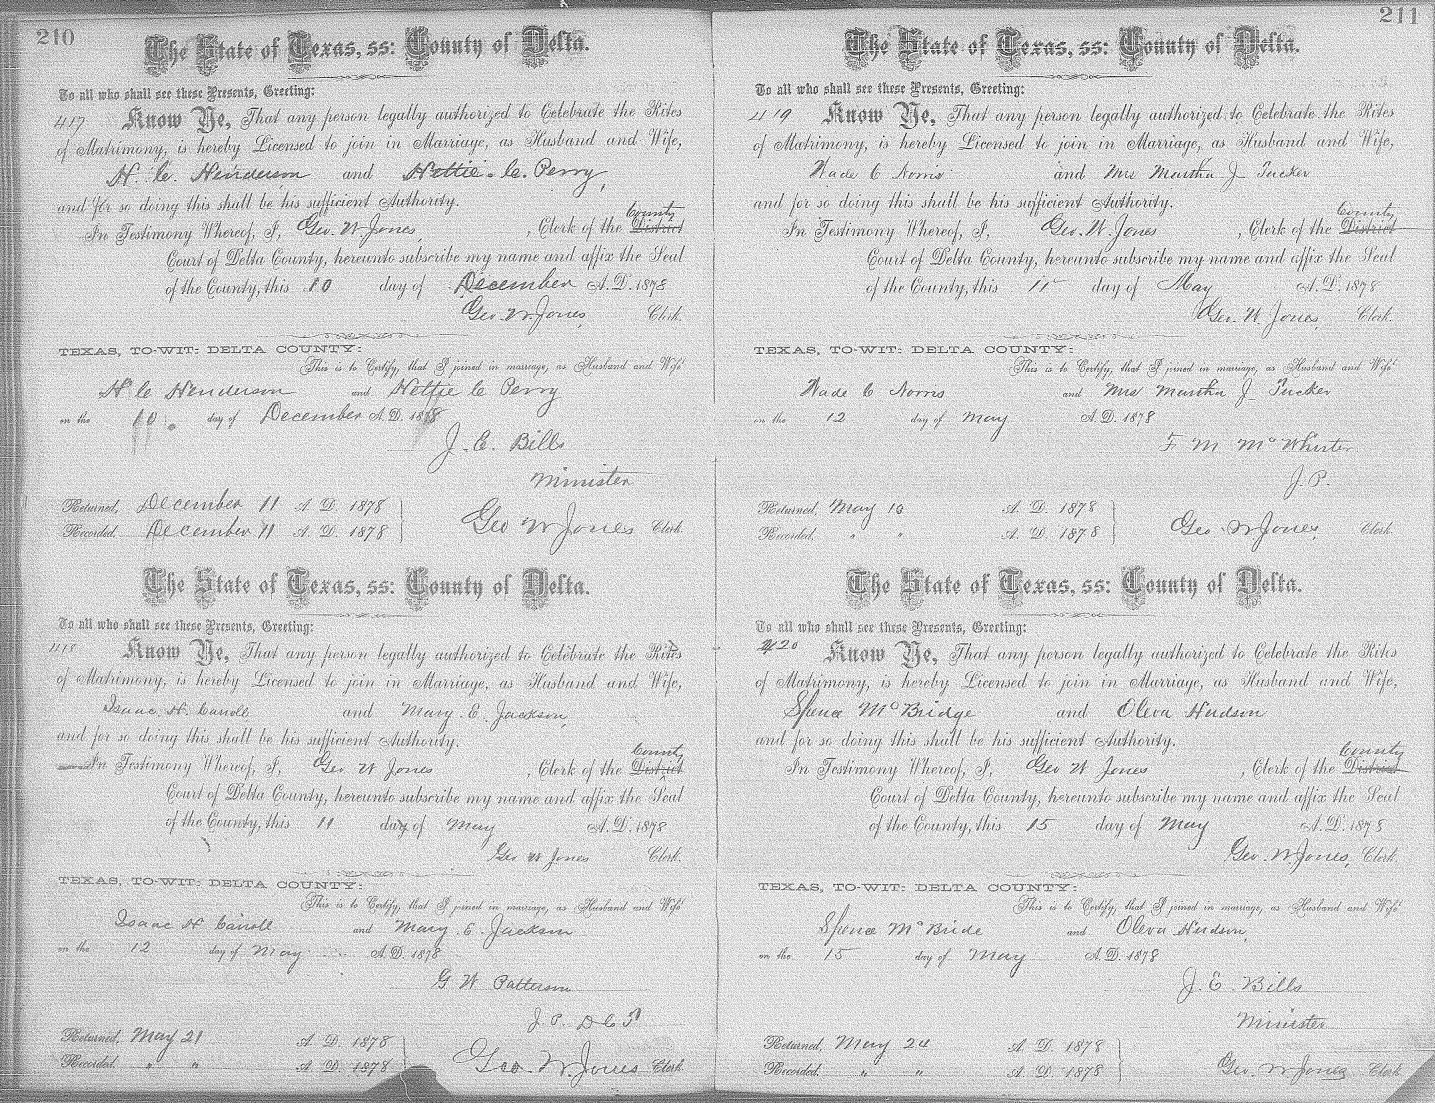 210
The State of Texas, ss: County of Delta.
To all who shall see these Presents, Greeting:
417 Know Ye, That any person legally authorized to Celebrate the Rites
of Matrimony, is hereby Licensed to join in Marriage, as Husband and Wife,
H. C. Henderson and Hettie C. Perry,
and for so doing this shall be his sufficient Authority.
County
In Testimony Whereof, I, Geo. W Jones, , Clerk of the District
Court of Delta County, hereunto subscribe my name and affix the Seal
of the County, this 10 day of December A. D. 1878
Geo. W Jones, Clerk.
TEXAS, TO-WIT: DELTA COUNTY:
This is to Certify, that I joined in marriage, as Husband and Wife
H C Henderson and Hettie C Perry
on the 10 day of December A. D. 1878
J. E. Bills
Minister
Returned, December 11 A. D. 1878
Recorded, December 11 A. D. 1878 Geo W Jones Clerk
The State of Texas, ss: County of Delta.
To all who shall see these Presents, Greeting:
418 Know Ye, That any person legally authorized to Celebrate the Rites
of Matrimony, is hereby Licensed to join in Marriage, as Husband and Wife,
Isaac H. Carroll and Mary E. Jackson,
and for so doing this shall be his sufficient Authority.
County
In Testimony Whereof, I, Geo W Jones , Clerk of the District
Court of Delta County, hereunto subscribe my name and affix the Seal
of the County, this 11 day of May A. D. 1878
Geo W Jones Clerk.
TEXAS, TO-WIT: DELTA COUNTY:
This is to Certify, that I joined in marriage, as Husband and Wife
Isaac H Carroll and Mary. E. Jackson
on the 12 day of May A. D. 1878
G W Patterson
J. P. D C T
Returned, May 21 A. D. 1878
Recorded. " " A. D. 1878 Geo. W Jones Clerk
211
The State of Texas, ss: County of Delta.
To all who shall see these Presents, Greeting:
419 Know Ye, That any person legally authorized to Celebrate the Rites
of Matrimony, is hereby Licensed to join in Marriage, as Husband and Wife,
Wade C Norris and Mrs Martha J Tucker
and for so doing this shall be his sufficient Authority.
County
In Testimony Whereof, I, Geo. W. Jones , Clerk of the District
Court of Delta County, hereunto subscribe my name and affix the Seal
of the County, this 11 day of May A. D. 1878
Geo. W. Jones, Clerk.
TEXAS, TO-WIT: DELTA COUNTY:
This is to Certify, that I joined in marriage, as Husband and Wife
Wade C Norris and Mrs Martha J Tucker
on the 12 day of May A. D. 1878
F M McWhirter
J. P.
Returned, May A. D. 1878
Recorded. " " A. D. 1878 Geo W Jones, Clerk.
The State of Texas, ss: County of Delta.
To all who shall see these Presents, Greeting:
420 Know Ye, That any person legally authorized to Celebrate the Rites
of Matrimony, is hereby Licensed to join in Marriage, as Husband and Wife,
Spence McBridge and Oleva Hudson
and for so doing this shall be his sufficient Authority.
County
In Testimony Whereof, I, Geo W Jones , Clerk of the District
Court of Delta County, hereunto subscribe my name and affix the Seal
of the County, this 15 day of May A. D. 1878
Geo. W Jones, Clerk.
TEXAS, TO-WIT: DELTA COUNTY:
This is to Certify, that I joined in marriage, as Husband and Wife
Spence McBride and Oleva Hudson,
on the 15 day of May A. D. 1878
J. E. Bills
Minister
Returned, May 24 A. D. 1878
Recorded. " " A. D. 1878 Geo. W Jones Clerk